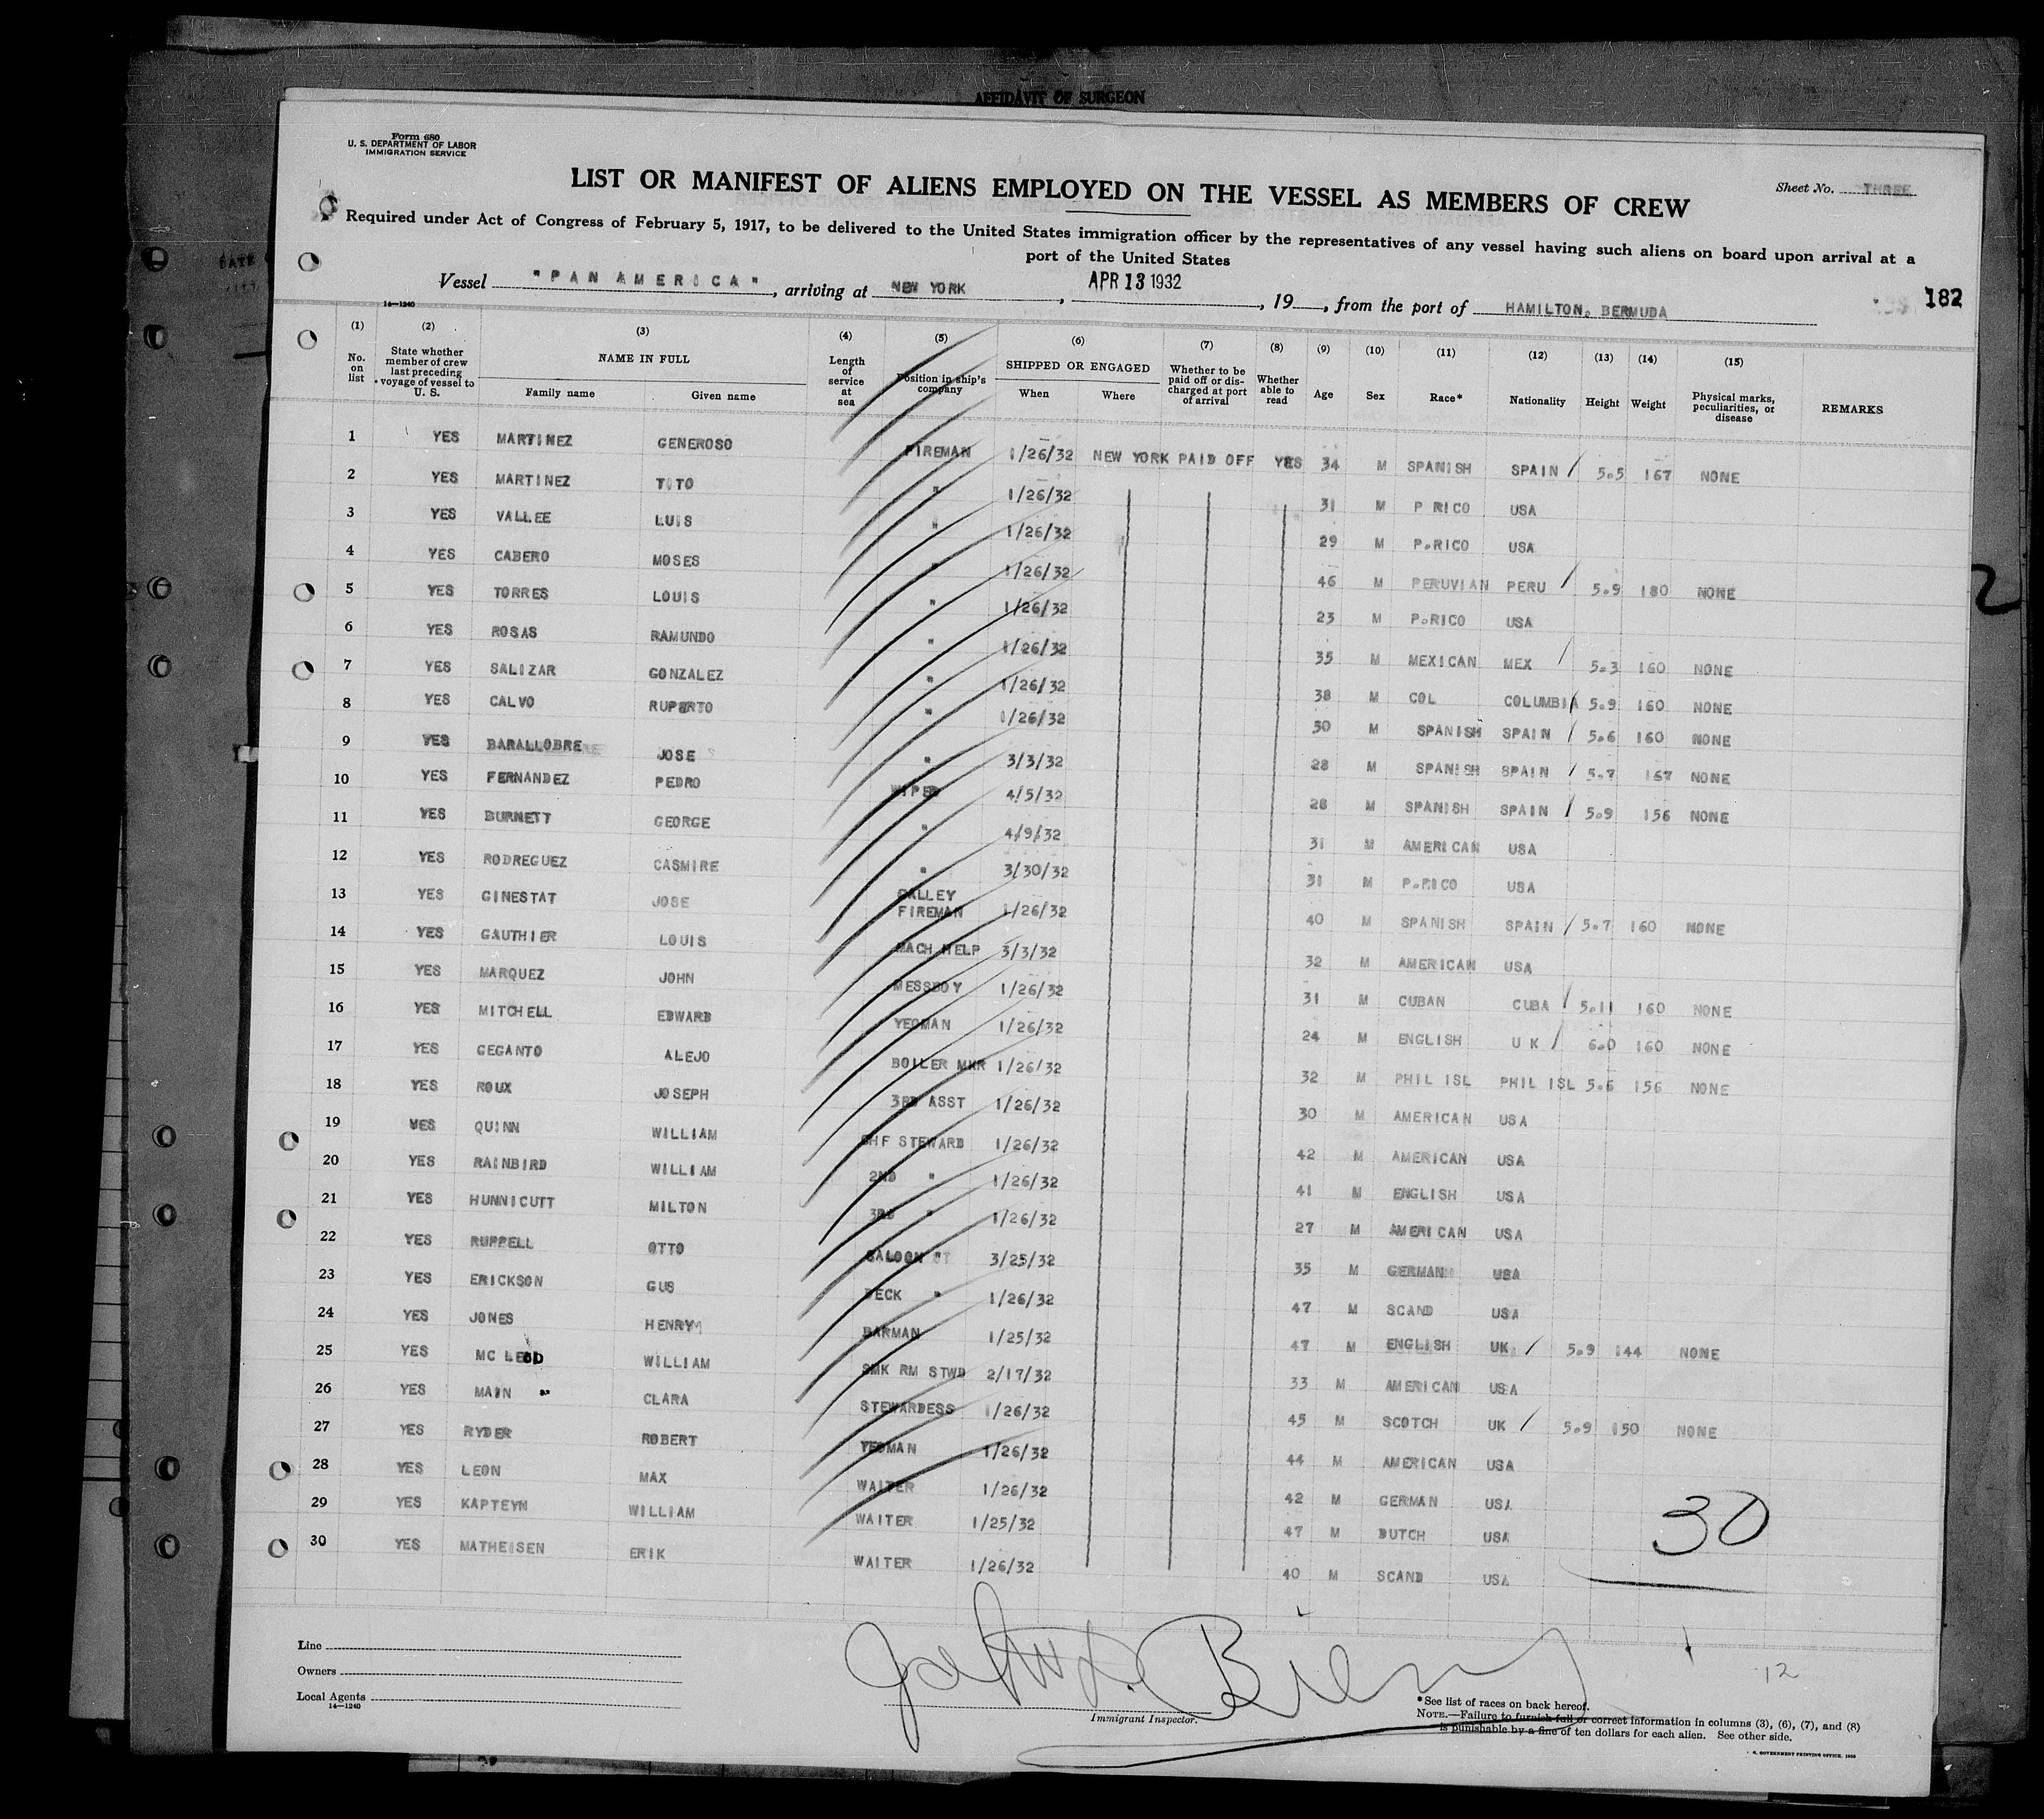 AFFIDAVIT OF SURGEON
Form 680
U. S. DEPARTMENT OF LABOR
IMMIGRATION SERVICE
LIST OR MANIFEST OF ALIENS EMPLOYED ON THE VESSEL AS MEMBERS OF CREW
Sheet No. THREE
Required under Act of Congress of February 5, 1917, to be delivered to the United States immigration officer by the representatives of any vessel having such aliens on board upon arrival at a
port of the United States
Vessel "PAN AMERICA", arriving at NEW YORK, APR 13 1932, 19, from the port of HAMILTON. BERMUDA
182
14—1240
(1) (2) (3) (4) (5) (6) (7) (8) (9) (10) (11) (12) (13) (14) (15)
No. on list State whether member of crew last preceding voyage of vessel to U. S. NAME IN FULL Family name Given name Length of service at sea Position in ship's company SHIPPED OR ENGAGED When Where Whether to be paid off or discharged at port of arrival Whether able to read Age Sex Race* Nationality Height Weight Physical marks, peculiarities, or disease REMARKS
1 YES MARTINEZ GENEROSO FIREMAN 1/26/32 NEW YORK PAID OFF YES 34 M SPANISH SPAIN / 5.5 167 NONE
2 YES MARTINEZ TITO " 1/26/32 31 M P RICO USA
3 YES VALLEE LUIS " 1/26/32 29 M P.RICO USA
4 YES CABERO MOSES " 1/26/32 46 M PERUVIAN PERU / 5.9 180 NONE
5 YES TORRES LOUIS " 1/26/32 23 M P.RICO USA
6 YES ROSAS RAMUNDO " 1/26/32 35 M MEXICAN MEX / 5.3 160 NONE
7 YES SALIZAR GONZALEZ " 1/26/32 38 M COL COLUMBIA 5.9 160 NONE
8 YES CALVO RUPERTO " 1/26/32 30 M SPANISH SPAIN / 5.6 160 NONE
9 YES BARALLOBRE JOSE " 3/3/32 28 M SPANISH SPAIN / 5.7 167 NONE
10 YES FERNANDEZ PEDRO WIPER 4/5/32 28 M SPANISH SPAIN / 5.9 156 NONE
11 YES BURNETT GEORGE " 4/9/32 31 M AMERICAN USA
12 YES RODREGUEZ CASMIRE " 3/30/32 31 M P.RICO USA
13 YES GINESTAT JOSE GALLEY FIREMAN 1/26/32 40 M SPANISH SPAIN / 5.7 160 NONE
14 YES GAUTHIER LOUIS MACH HELP 3/3/32 32 M AMERICAN USA
15 YES MARQUEZ JOHN MESSBOY 1/26/32 31 M CUBAN CUBA / 5.11 160 NONE
16 YES MITCHELL EDWARD YEOMAN 1/26/32 24 M ENGLISH U K / 6.0 160 NONE
17 YES GEGANTO ALEJO BOILER MKR 1/26/32 32 M PHIL ISL PHIL ISL 5.6 156 NONE
18 YES ROUX JOSEPH 3RD ASST 1/26/32 30 M AMERICAN USA
19 YES QUINN WILLIAM CHF STEWARD 1/26/32 42 M AMERICAN USA
20 YES RAINBIRD WILLIAM 2ND " 1/26/32 41 M ENGLISH USA
21 YES HUNNICUTT MILTON 3RD " 1/26/32 27 M AMERICAN USA
22 YES RUPPELL OTTO SALOON " 3/25/32 35 M GERMAN USA
23 YES ERICKSON GUS DECK " 1/26/32 47 M SCAND USA
24 YES JONES HENRY BARMAN 1/25/32 47 M ENGLISH UK / 5.9 144 NONE
25 YES MC LEOD WILLIAM SMK RM STWD 2/17/32 33 M AMERICAN USA
26 YES MAIN CLARA STEWARDESS 1/26/32 45 M SCOTCH UK / 5.9 150 NONE
27 YES RYDER ROBERT YEOMAN 1/26/32 44 M AMERICAN USA
28 YES LEON MAX WAITER 1/26/32 42 M GERMAN USA
29 YES KAPTEYN WILLIAM WAITER 1/25/32 47 M DUTCH USA
30 YES MATHEISEN ERIK WAITER 1/26/32 40 M SCAND USA
30
12
Line
Owners
Local Agents
14—1240
Immigrant Inspector.
*See list of races on back hereof.
NOTE.—Failure to furnish full or correct information in columns (3), (6), (7), and (8)
is punishable by a fine of ten dollars for each alien. See other side.
GOVERNMENT PRINTING OFFICE